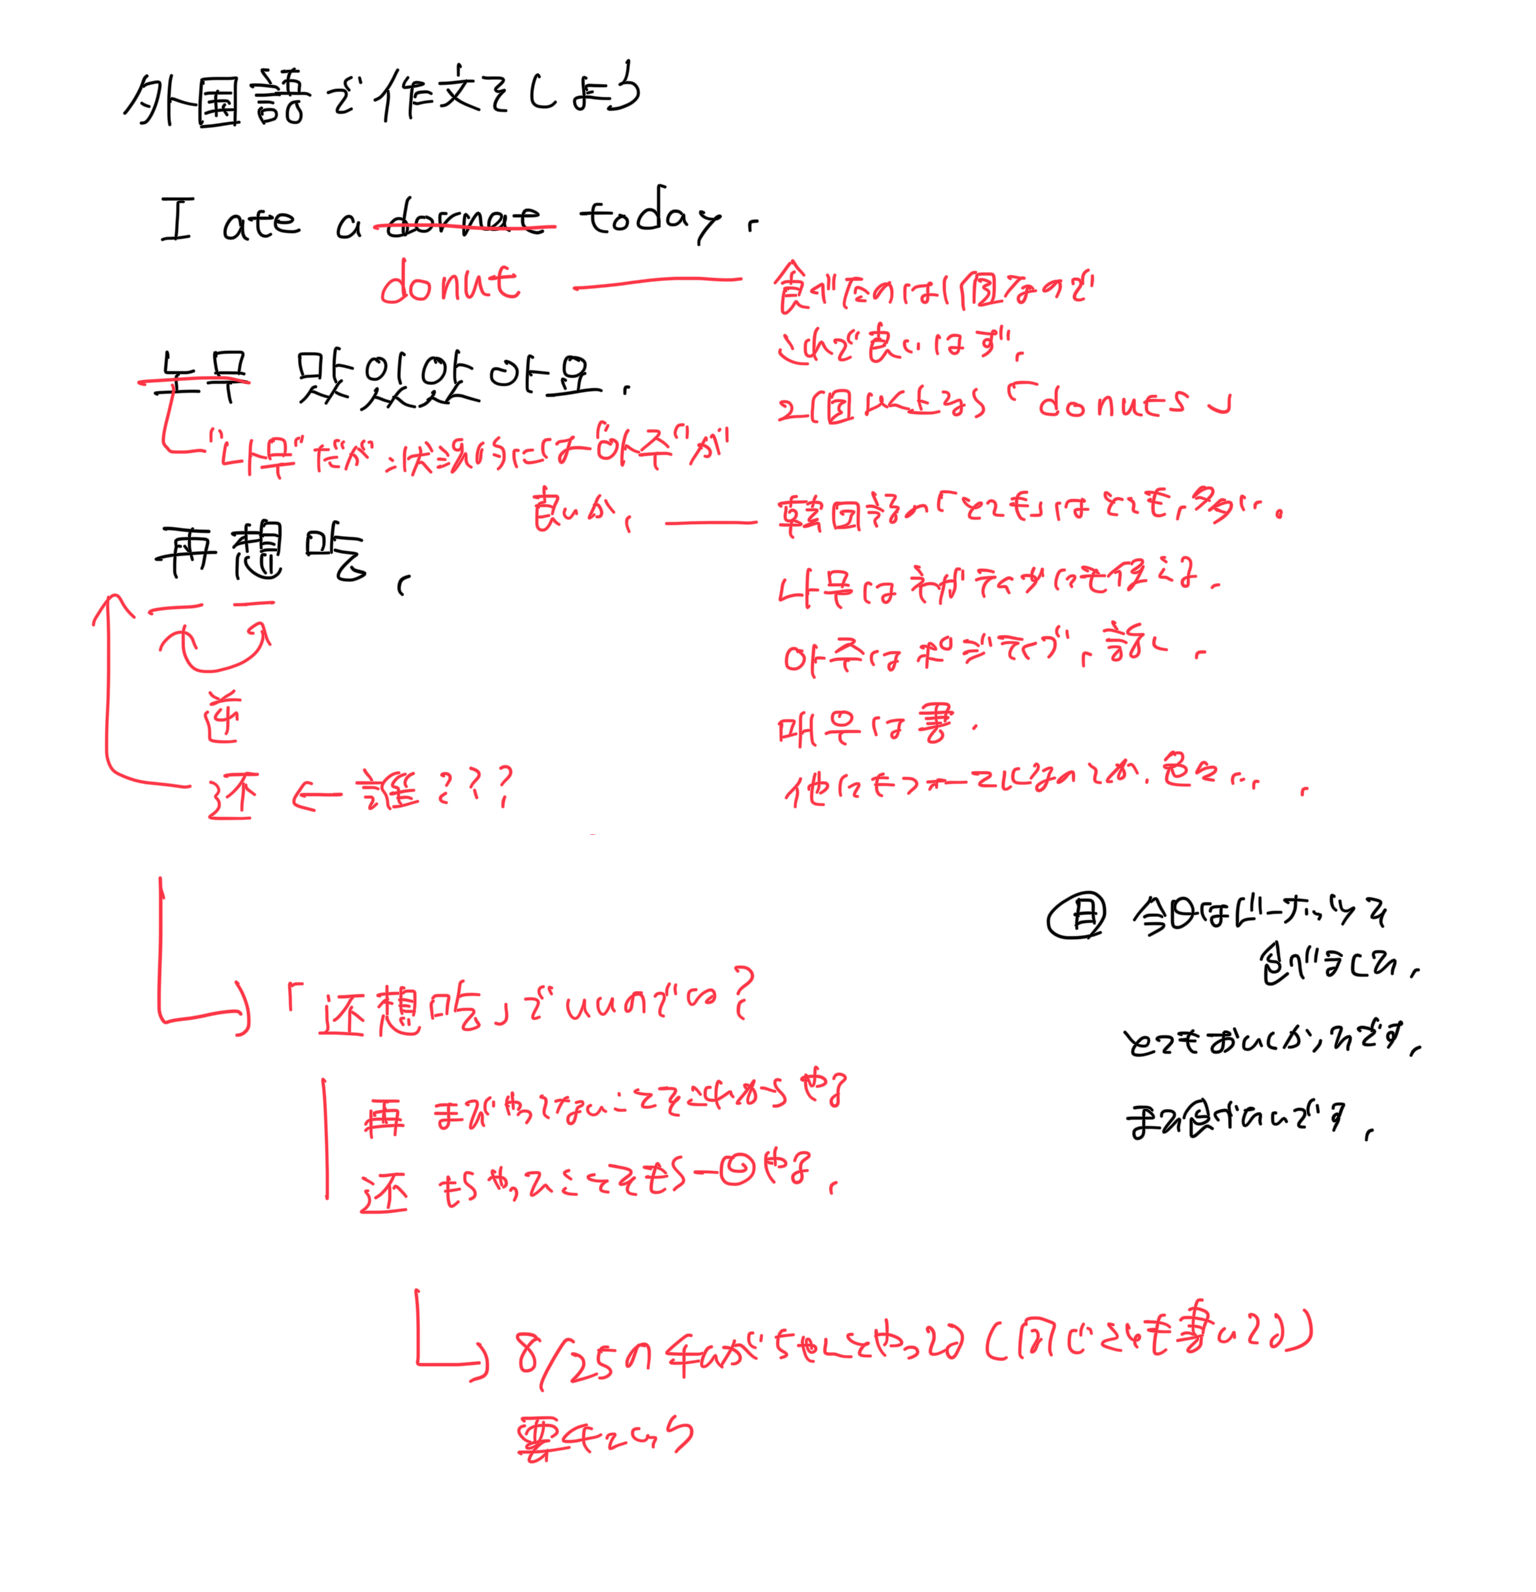 外国語で作文をしよう
I ate a dornat today.
donut
食べたのは1個なので
これで良いはず。
2個以上なら「donuts」
노무 맜있았아요.
"나무"だが状況的には"아주"が
良いか、
韓国語の「とても」はとても、多い。
나무はネガティブにも使える。
아주はポジティブ、話し。
매우は書。
他にもフォーマルなのとか、色々…。
再想吃。
逆
还 ← 誰???
「还想吃」でいいのでは?
再 まだやってないことをこれからやる
还 もうやったことをもう一回やる。
8/25の私がちゃんとやってる(同じことも書いてる)
要チェック
日 今日はドーナッツを
食べました。
とてもおいしかったです。
また食べたいです。